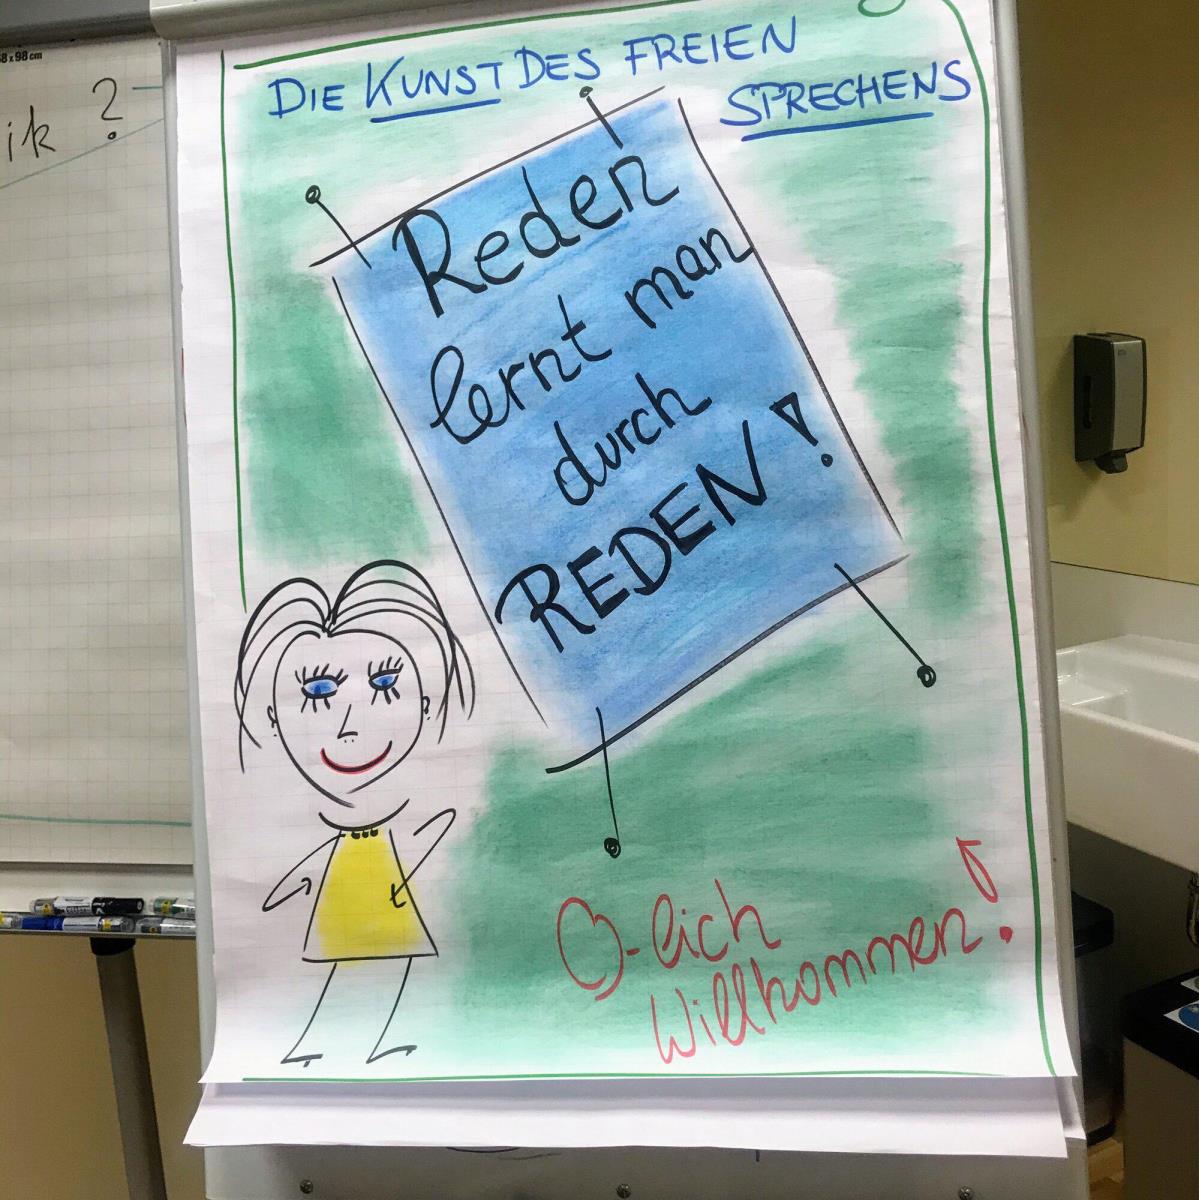 68x98cm
ik ?
DIE KUNST DES FREIEN
SPRECHENS
Reden
lernt man
durch
REDEN!
O-lich
Willkommen!